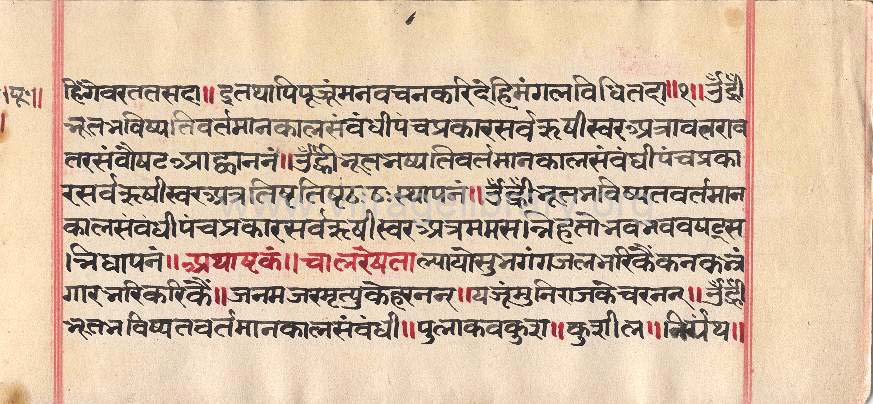 ।पू॰॥
हिंगेवरततसदा॥ द्रुतथापिपूजूंमनवचनकरिदेहिमंगलविधितदा॥१॥ उँह्रीं
भूतभविष्यतिवर्तमानकालसंबंधीपंचप्रकारसर्वऋषीस्वरअत्रावतराव
तरसंवौषटआह्वाननं॥ उँह्रींभूतभष्यतिवर्तमानकालसंबंधीपंचप्रका
रसर्वऋषीस्वरअत्रतिष्टतिष्टठःठःस्थापनं॥ उँह्रींभूतभविष्यतवर्तमान
कालसंबंधीपंचप्रकारसर्वऋषीस्वरअत्रममसन्निहतोभवभववषट्स
न्निधापनं॥ अथाष्टकं॥ चालरेषता ल्यायोसुभगंगजलभरिकैंकनकभृं
गारभरिकरिकैं॥ जनमजरमृत्युकेहरनन्॥ यजूंमुनिराजकेचरनन्॥ उँह्रीं
भूतभविष्यतवर्तमानकालसंबंधी॥ पुलाकवकुश॥ कुशील॥ निर्ग्रंथ॥